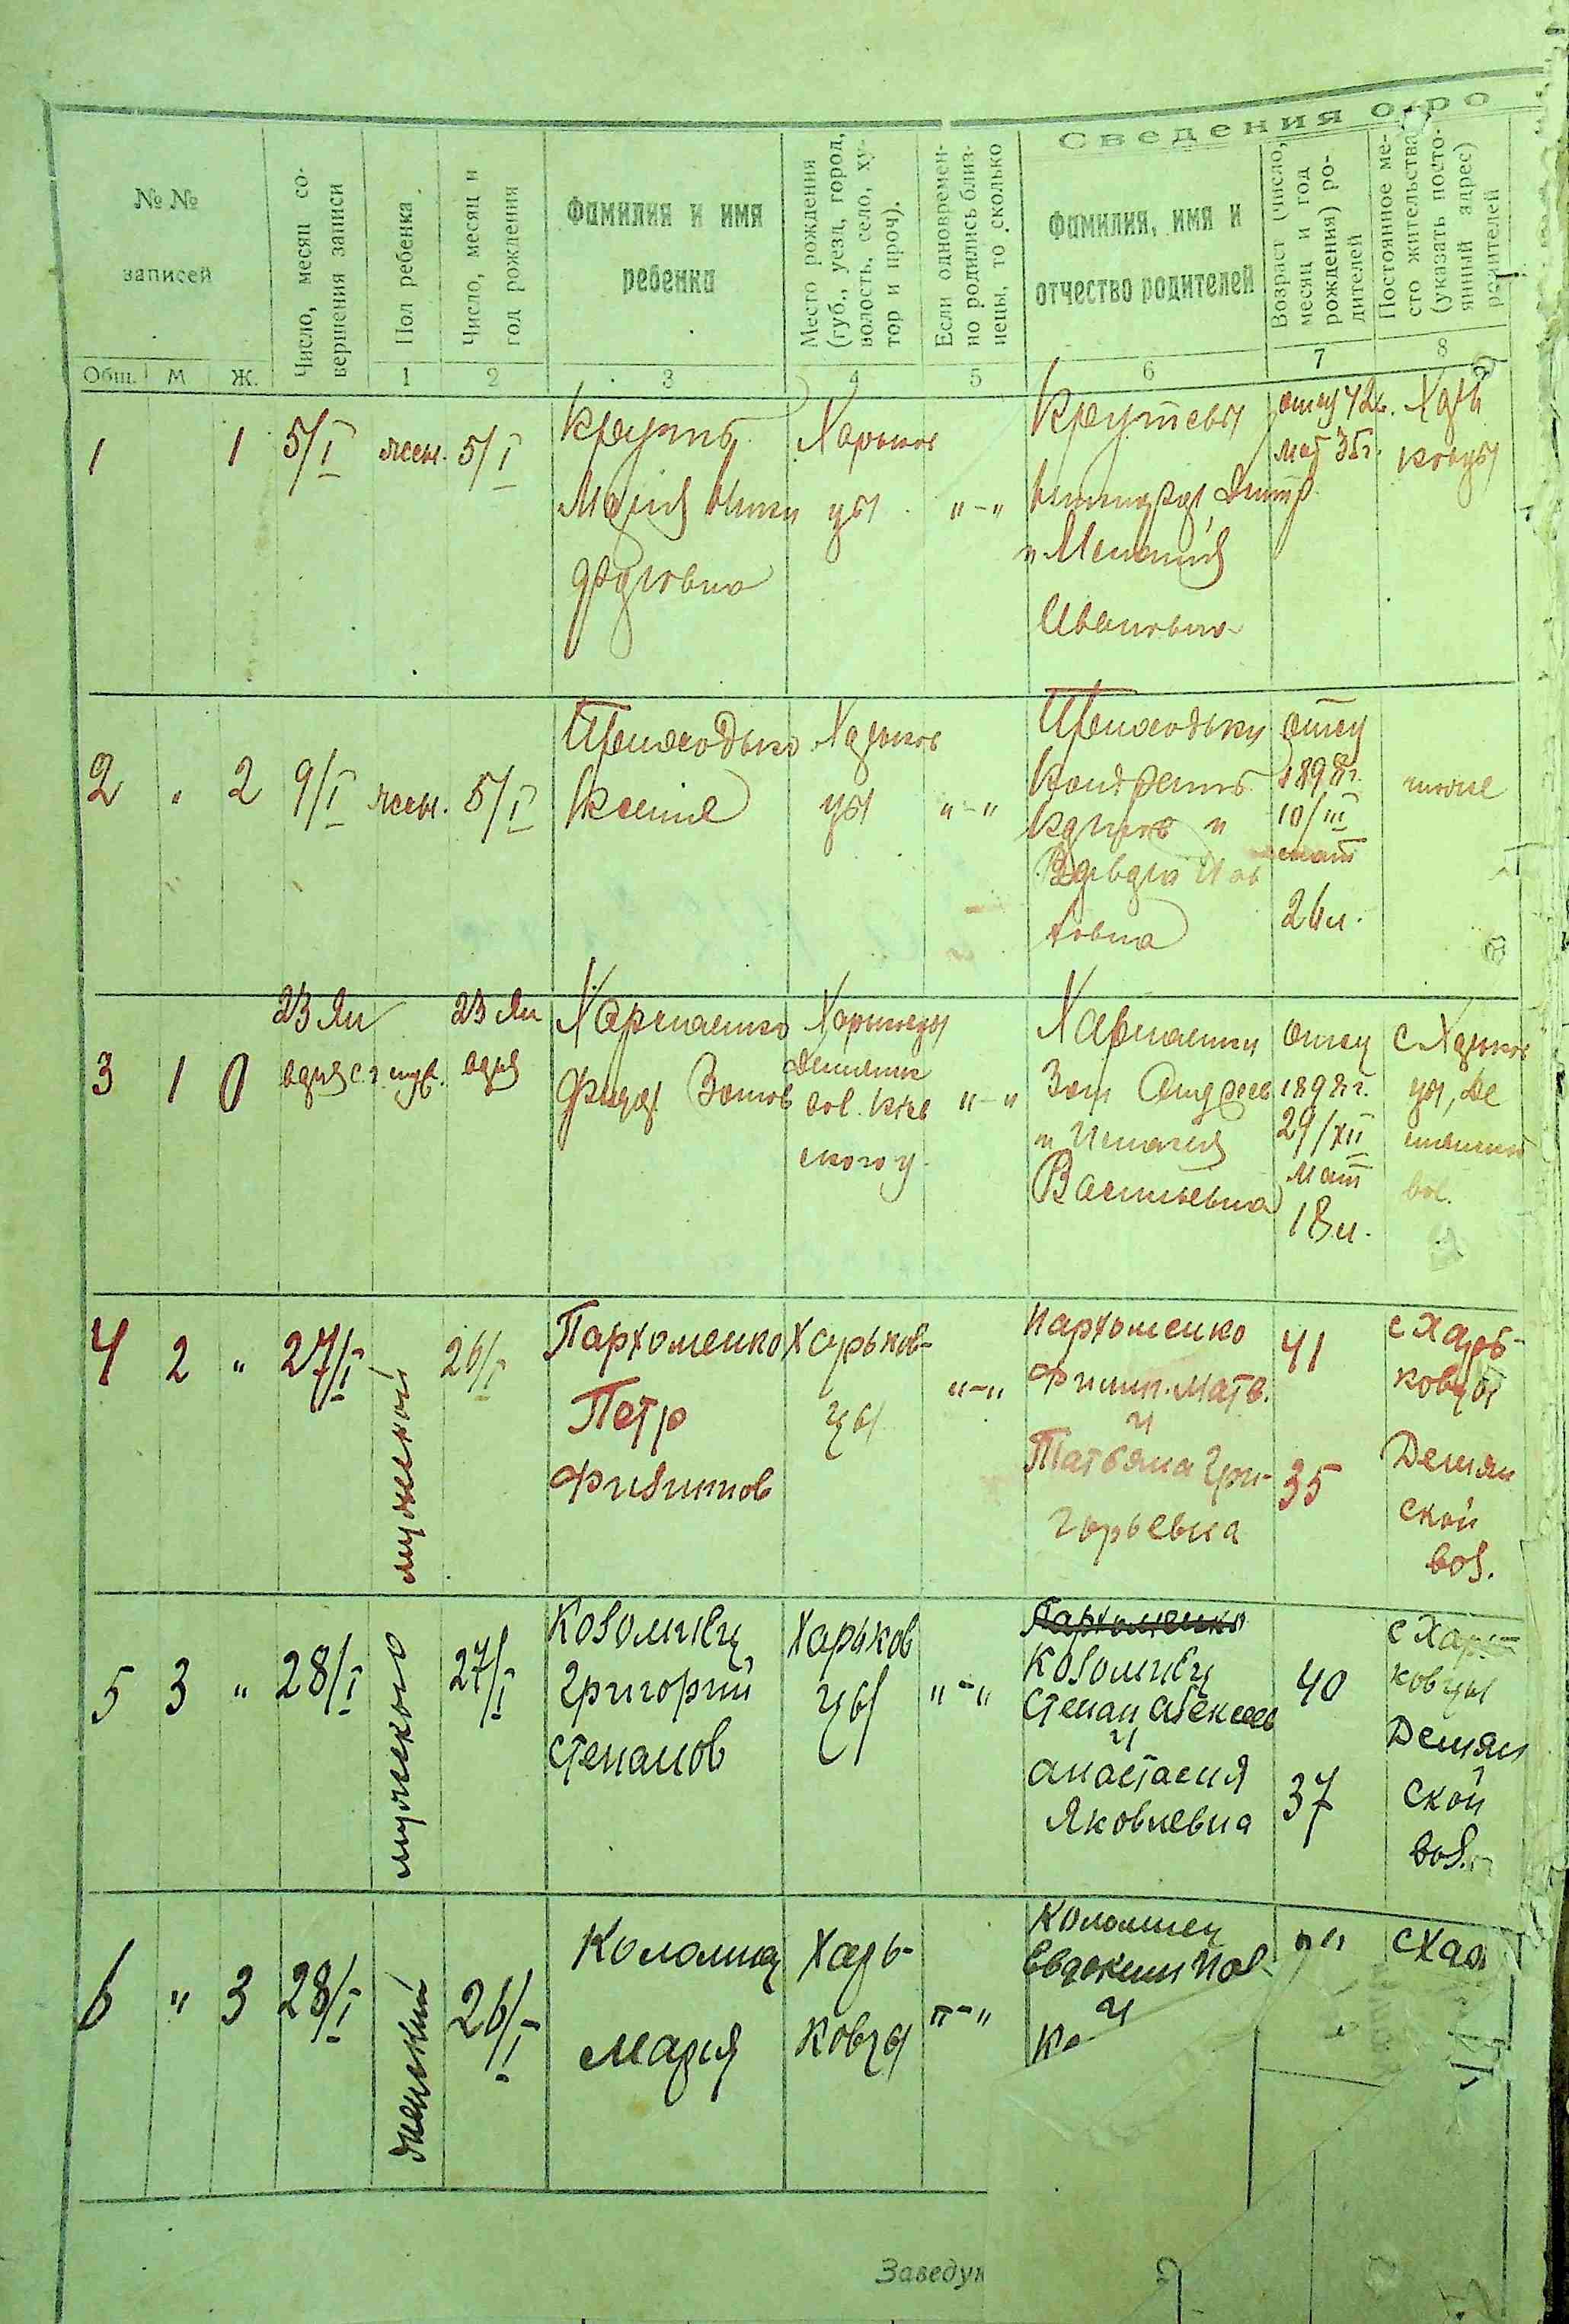 Сведения о ро
№ №
записей
Число, месяц со-
вершения записи
Пол ребенка
Число, месяц и
год рождения
Фамилия и имя
ребенка
Место рождения
(губ., уезд, город,
волость, село, ху-
тор и проч).
Если одновремен-
но родились близ-
нецы, то сколько
Фамилия, имя и
отчество родителей
Возраст (число,
месяц и год
рождения) ро-
дителей
Постоянное ме-
сто жительства
(указать посто-
янный адрес)
родителей
Общ. М Ж. 1 2 3 4 5 6 7 8
1 1 5/I жен. 5/I
Круть
Мария
Харьков
цы
"-"
Крутевы
и Мелания
Ивановна
отцу 42г.
мат 35г.
Харь
ковцы
2 " 2 9/I жен. 5/I
Приходько
Ксения
Харьков
цы
"-"
Приходьки
Кондрат
и
Варвара
отец
1898г.
10/III
мат
26л.
тоже
3 1 0
23 Ян
варя с.г. муж.
23 Ян
варя
Харченко
Зотов
Харьковцы
вол.
ского у.
"-"
Харченки
Зот Андреев
и
Васильевна
отец
1898г.
29/XII
мат
18л.
с Харьков
цы, Де
вол.
4 2 " 27/I мужеской 26/I
Пархоменко
Петр
Филипов
Харьков-
цы
"-"
Пархоменко
Филип. Матв.
и
Татьяна Гри-
горьевна
41
35
с Харь-
ковцы
Демян
ской
вол.
5 3 " 28/I мужеского 27/I
Коломиец
Григорий
Степанов
Харьков
цы
"-"
Пархоменко
Коломиец
Степан Алексеев
и
Анастасия
Яковлевна
40
37
с Харь
ковцы
Демян
ской
вол.
6 " 3 28/I женский 26/I
Коломиец
Мария
Харь-
ковцы
"-"
Коломиец
Евдоким Пав
и
Ко
" "
с Хар
Заведу